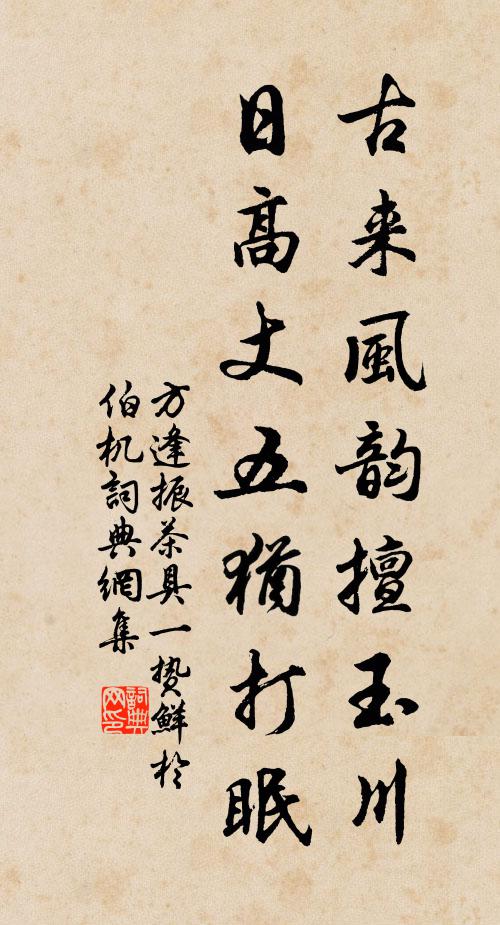 古来風韵擅玉川
日高丈五猶打眠
方逢振茶具一贄鮮於
伯机詞典網集
詞典网印